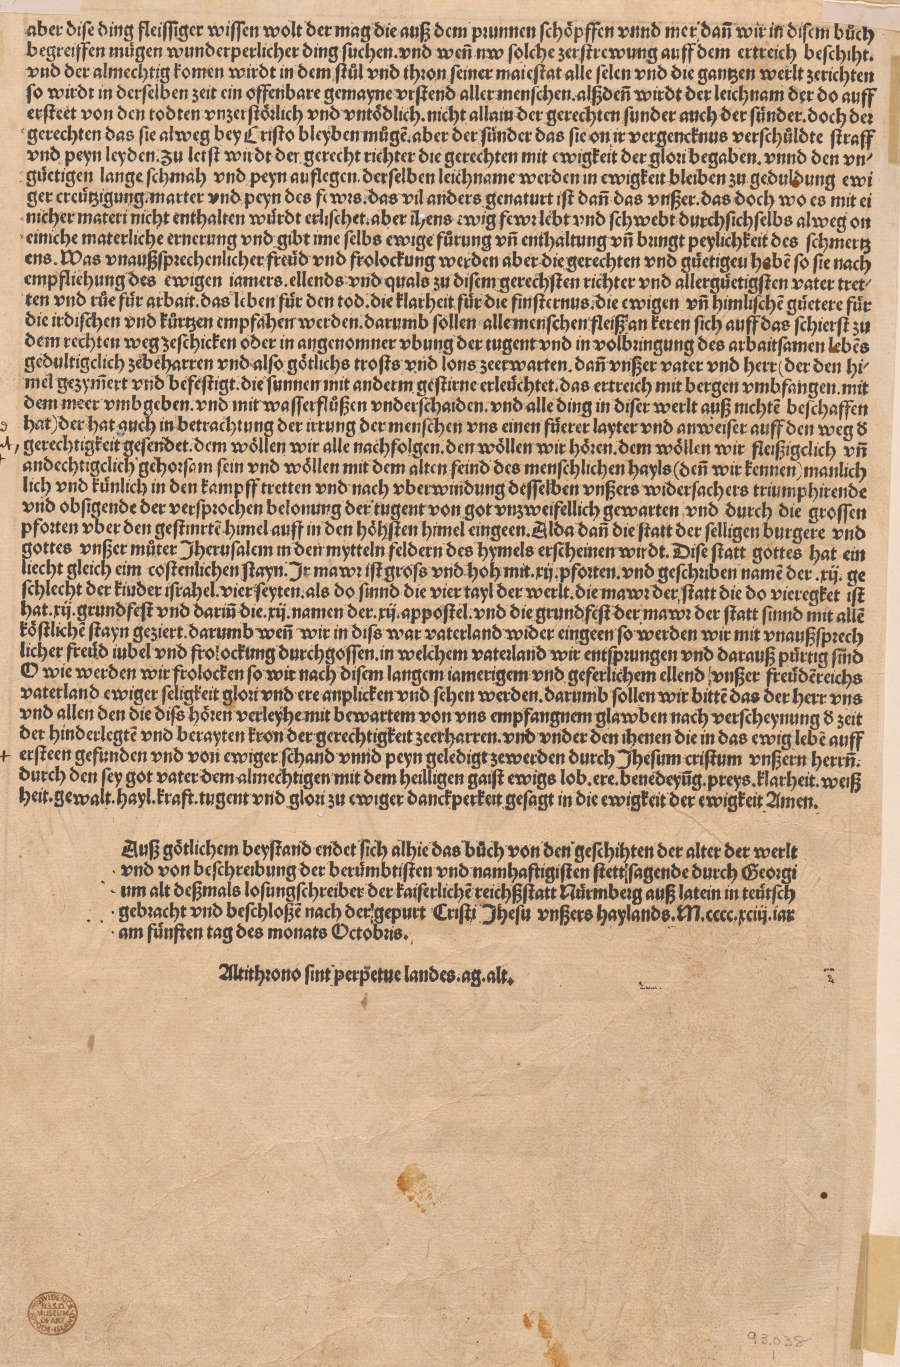 aber dise ding fleissiger wissen wolt der mag die auß dem prunnen schöpffen vnnd mer dañ wir in disem bůch
begreiffen mügen wunderperlicher ding suchen. vnd weñ nw solche zerstrewung auff dem ertreich beschiht.
vnd der almechtig komen wirdt in dem stůl vnd thron seiner maiestat alle selen vnd die gantzen werlt zerichten
so wirdt in derselben zeit ein offenbare gemayne vrstend aller menschen. alßdeñ wirdt der leichnam der do auff
ersteet von den todten vnzerstörlich vnd vntödlich. nicht allain der gerechten sunder auch der sünder. doch der
gerechten das sie alweg bey Cristo bleyben mügẽ. aber der sünder das sie on ir vergencknus verschůldte straff
vnd peyn leyden. Zu letst wirdt der gerecht richter die gerechten mit ewigkeit der glori begaben. vnnd den vn-
güetigen lange schmah vnd peyn auflegen. derselben leichname werden in ewigkeit bleiben zu geduldung ewi
ger creützigung. marter vnd peyn des fewrs. das vil anders genaturt ist dañ das vnßer. das doch wo es mit ei
nicher materi nicht enthalten würdt erlischet. aber ihens ewig fewr lebt vnd schwebt durchsichselbs alweg on
einiche materliche ernerung vnd gibt ime selbs ewige fůrung vñ enthaltung vñ bringt peylichkeit des schmertz
ens. Was vnaußsprechenlicher freüd vnd frolockung werden aber die gerechten vnd güetigen habẽ so sie nach
empfliehung des ewigen iamers. ellends vnd quals zu disem gerechsten richter vnd allergüetigsten vater tret-
ten vnd růe für arbait. das leben für den tod. die klarheit für die finsternus. die ewigen vñ himlischẽ güetere für
die irdischen vnd kürtzen empfahen werden. darumb sollen alle menschen fleiß an keren sich auff das schierst zu
dem rechten weg zeschicken oder in angenomner vbung der tugent vnd in volbringung des arbaitsamen lebẽs
gedultigclich zebeharren vnd also götlichs trosts vnd lons zeerwarten. dañ vnßer vater vnd herr (der den hi-
mel gezym̃ert vnd befestigt. die sunnen mit anderm gestirne erleüchtet. das ertreich mit bergen vmbfangen. mit
dem meer vmbgeben. vnd mit wasserflüßen vnderschaiden. vnd alle ding in diser werlt auß nichtẽ beschaffen
hat) der hat auch in betrachtung der irrung der menschen vns einen füerer layter vnd anweiser auff den weg d̕
gerechtigkeit gesendet. dem wöllen wir alle nachfolgen. den wöllen wir hören. dem wöllen wir fleißigclich vñ
andechtigclich gehorsam sein vnd wöllen mit dem alten feind des menschlichen hayls (deñ wir kennen) manlich
lich vnd künlich in den kampff tretten vnd nach vberwindung desselben vnßers widersachers triumphirende
vnd obsigende der versprochen belonung der tugent von got vnzweifellich gewarten vnd durch die grossen
pforten vber den gestirntẽ himel auff in den höhsten himel eingeen. Alda dañ die statt der selligen burgere vnd
gottes vnßer můter Jherusalem in den mytteln feldern des hymels erscheinen wirdt. Dise statt gottes hat ein
liecht gleich eim costenlichen stayn. Ir mawr ist gross vnd hoh mit. xij. pforten. vnd geschriben namẽ der. xij. ge
schlecht der kinder israhel. vier seyten. als do sinnd die vier tayl der werlt. die mawr der statt die do vieregket ist
hat. xij. grundfest vnd dariñ die. xij. namen der. xij. appostel. vnd die grundfest der mawr der statt sinnd mit allẽ
köstlichẽ stayn geziert. darumb weñ wir in diss war vaterland wider eingeen so werden wir mit vnaußsprech
licher freüd iubel vnd frolockung durchgossen. in welchem vaterland wir entsprungen vnd darauß pürtig sind
O wie werden wir frolocken so wir nach disem langem iamerigem vnd geferlichem ellend vnßer freüdẽreichs
vaterland ewiger seligkeit glori vnd ere anplicken vnd sehen werden. darumb sollen wir bittẽ das der herr vns
vnd allen den die diss hören verleyhe mit bewartem von vns empfangnem glawben nach verscheynung d̕ zeit
der hinderlegtẽ vnd berayten kron der gerechtigkeit zeerharren. vnd vnder den ihenen die in das ewig lebẽ auff
ersteen gefunden vnd von ewiger schand vnnd peyn geledigt zewerden durch Jhesum cristum vnßern herrñ.
durch den sey got vater dem almechtigen mit dem heilligen gaist ewigs lob. ere. benedeyũg. preys. klarheit. weiß
heit. gewalt. hayl. kraft. tugent vnd glori zu ewiger danckperkeit gesagt in die ewigkeit der ewigkeit Amen.
Auß götlichem beystand endet sich alhie das bůch von den geschihten der alter der werlt
vnd von beschreibung der berümbtisten vnd namhaftigisten stett. sagende durch Georgi
um alt deßmals losungschreiber der kaiserlichẽ reichßstatt Nürmberg auß latein in teütsch
gebracht vnd beschloßẽ nach der gepurt Cristi Jhesu vnßers haylands. M. cccc. xciij. iar
am fünften tag des monats Octobris.
Altithrono sint perpetue landes. ag. alt.
PROVIDENCE
R.I.S.D.
MUSEUM
OF ART
RHODE-ISLAND
93.038